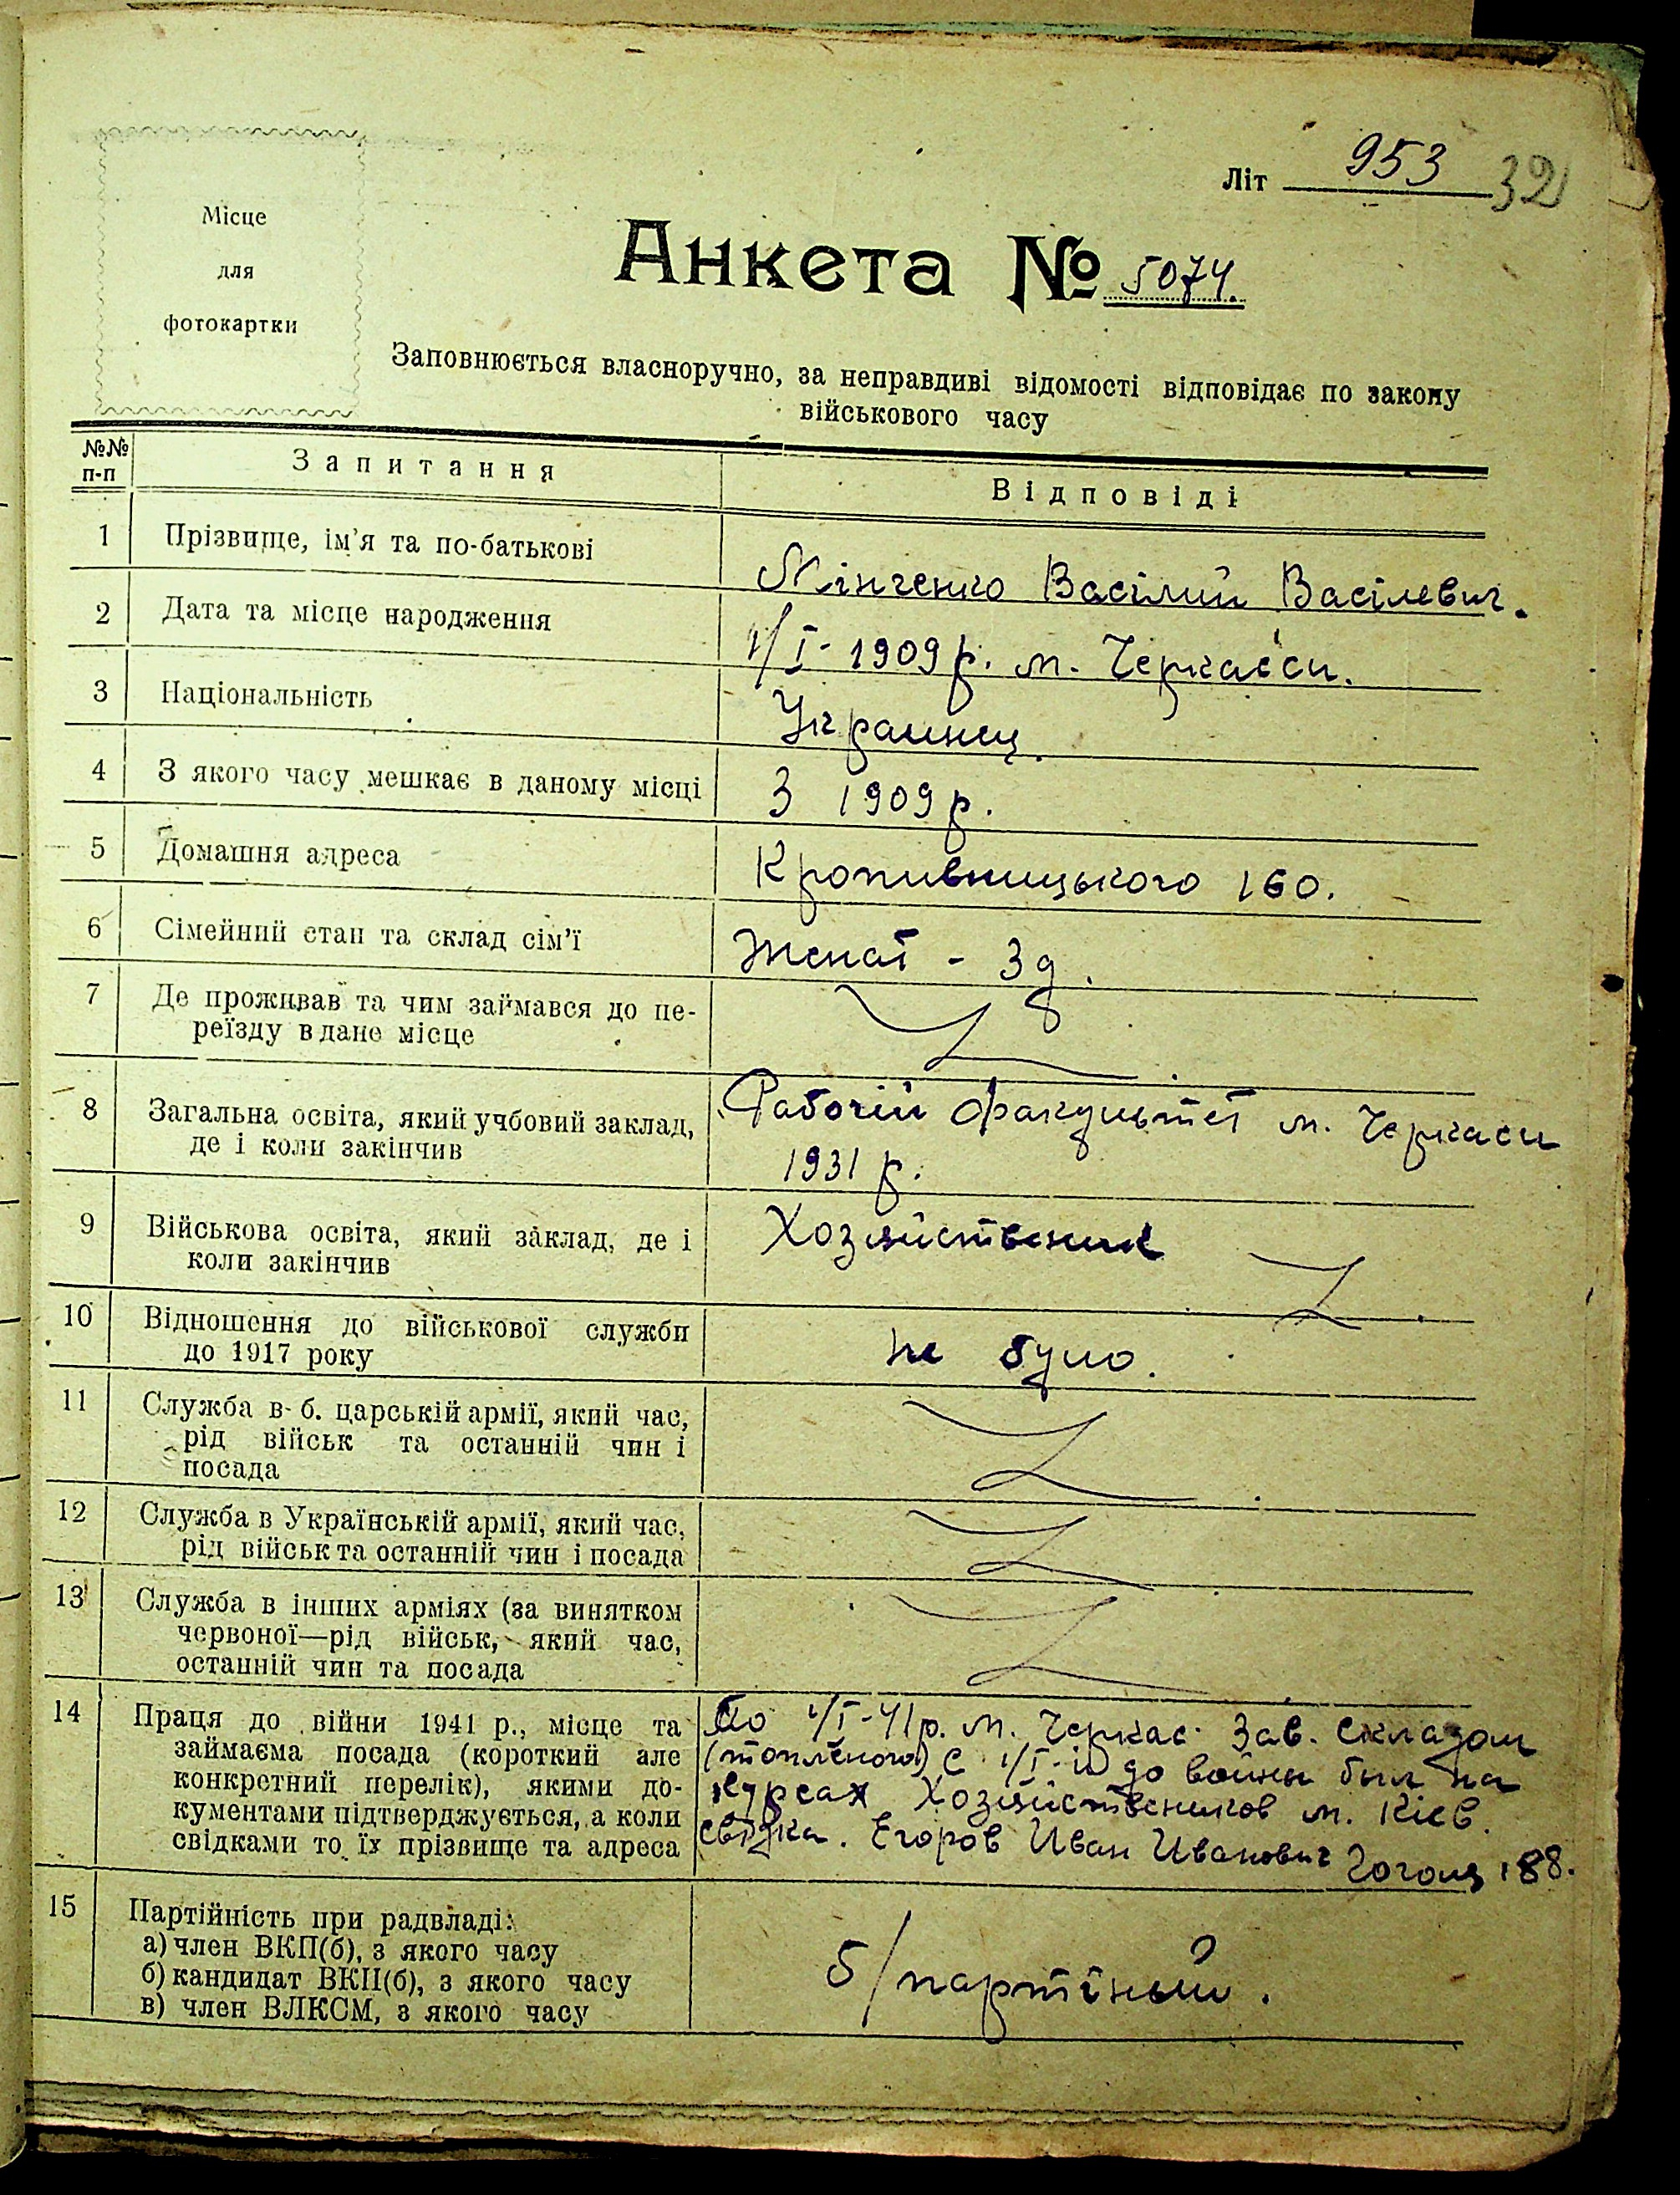 Літ 953 32
Місце
для
фотокартки
Анкета № 5074.
Заповнюється власноручно, за неправдиві відомості відповідає по закону
військового часу
№№
п-п
Запитання
Відповіді
1 Прізвище, ім'я та по-батькові
Мінченко Васілий Васілевич.
2 Дата та місце народження
1/I- 1909 р. м. Черкасси.
3 Національність
Украинец.
4 З якого часу мешкає в даному місці
З 1909 р.
5 Домашня адреса
Кропивницького 160.
6 Сімейний стан та склад сім'ї
Женат - 3 д.
7 Де проживав та чим займався до пе-
реїзду в дане місце
8 Загальна освіта, який учбовий заклад,
де і коли закінчив
Рабочій факультет м. Черкаси
1931 р.
9 Військова освіта, який заклад, де і
коли закінчив
Хозяйственик
10 Відношення до військової служби
до 1917 року
не було.
11 Служба в б. царській армії, який час,
рід військ та останній чин і
посада
12 Служба в Українській армії, який час,
рід військ та останній чин і посада
13 Служба в інших арміях (за винятком
червоної—рід військ, який час,
останній чин та посада
14 Праця до війни 1941 р., місце та
займаєма посада (короткий але
конкретний перелік), якими до-
кументами підтверджується, а коли
свідками то їх прізвище та адреса
По 1/I-41р. м. Черкас Зав. складом
(топленого) С 1/I- до войны был на
курсах Хозяйствеников м. Кієв.
свідка. Егоров Иван Иванович Гоголя 188.
15 Партійність при радвладі:
а) член ВКП(б), з якого часу
б) кандидат ВКП(б), з якого часу
в) член ВЛКСМ, з якого часу
б/партіный.